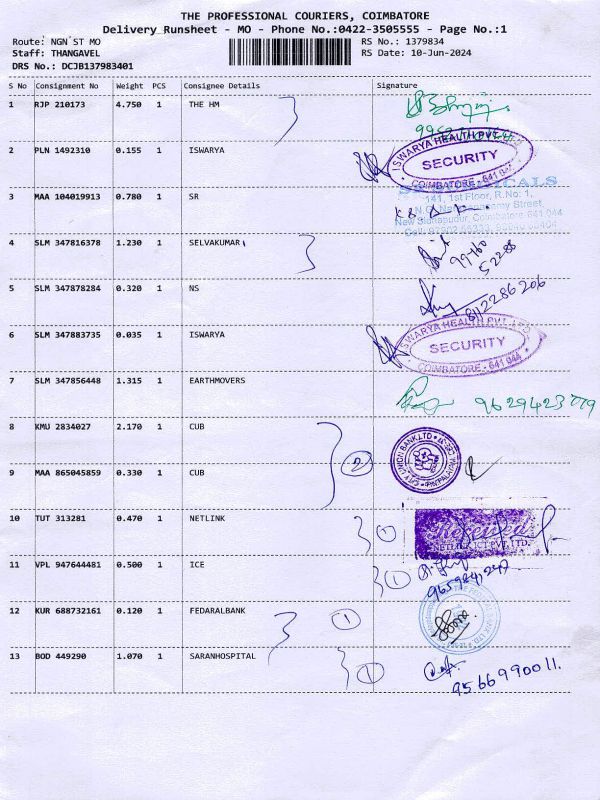 THE PROFESSIONAL COURIERS, COIMBATORE
Delivery Runsheet - MO - Phone No.:0422-3505555 - Page No.:1
Route: NGN ST MO
RS No.: 1379834
Staff: THANGAVEL
RS Date: 10-Jun-2024
DRS No.: DCJB137983401
S No Consignment No Weight PCS Consignee Details Signature
1 RJP 210173 4.750 1 THE HM
2 PLN 1492310 0.155 1 ISWARYA
ISWARYA HEALTH PVT. LTD
SECURITY
COIMBATORE - 641
3 MAA 104019913 0.780 1 SR
141, 1st Floor, R.No: 1,
Street,
Coimbatore 641 044
4 SLM 347816378 1.230 1 SELVAKUMAR
99460
52288
5 SLM 347878284 0.320 1 NS
8112286206
6 SLM 347883735 0.035 1 ISWARYA
ISWARYA HEALTH PVT. LTD
SECURITY
COIMBATORE - 641 044
7 SLM 347856448 1.315 1 EARTHMOVERS
9629423779
8 KMU 2834027 2.170 1 CUB
CITY UNION BANK LTD
2
9 MAA 865045859 0.330 1 CUB
10 TUT 313281 0.470 1 NETLINK
1
Received
11 VPL 947644481 0.500 1 ICE
1
9659841247
12 KUR 688732161 0.120 1 FEDARALBANK
1
13 BOD 449290 1.070 1 SARANHOSPITAL
1
9566990011.